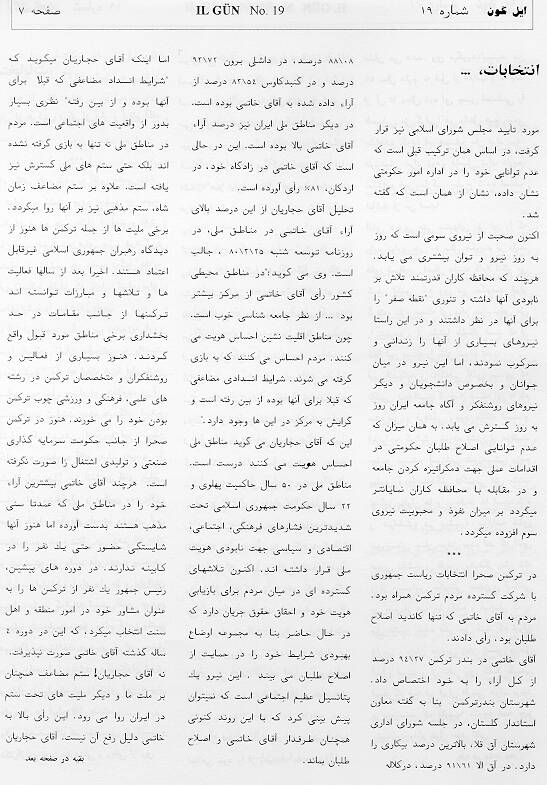 ایل گون شماره ۱۹
IL GÜN No. 19
صفحه ۷
انتخابات، ...
مورد تأیید مجلس شورای اسلامی نیز قرار
گرفت، در اساس همان ترکیب قبلی است که
عدم توانایی خود را در اداره امور حکومتی
نشان داده، نشان از همان است که گفته
شد.
اکنون صحبت از نیروی سومی است که روز
به روز نیرو و توان بیشتری می یابد.
هرچند که محافظه کاران قدرتمند تلاش بر
نابودی آنها داشته و تئوری "نقطه صفر" را
برای آنها در نظر داشتند و در این راستا
نیروهای بسیاری از آنها را زندانی و
سرکوب نمودند، اما این نیرو در میان
جوانان و بخصوص دانشجویان و دیگر
نیروهای روشنفکر و آگاه جامعه ایران روز
به روز گسترش می یابد. به همان میزان که
عدم توانایی اصلاح طلبان حکومتی در
اقدامات عملی جهت دمکراتیزه کردن جامعه
و در مقابله با محافظه کاران نمایانتر
میگردد بر میزان نفوذ و محبوبیت نیروی
سوم افزوده میگردد.
***
در ترکمن صحرا انتخابات ریاست جمهوری
با شرکت گسترده مردم ترکمن همراه بود.
مردم به آقای خاتمی که تنها کاندید اصلاح
طلبان بود، رأی دادند.
آقای خاتمی در بندر ترکمن ۹٤/۲۷ درصد
از کل آراء را به خود اختصاص داد.
شهرستان بندرترکمن بنا به گفته معاون
استاندار گلستان، در جلسه شورای اداری
شهرستان آق قلا، بالاترین درصد بیکاری را
دارد. در آق الا ۹۱/۶۱ درصد، درکلاله
۸۸/۰۸ درصد، در داشلی برون ۹۲/۷۲
درصد و در گنبدکاوس ۸۲/۵٤ درصد از
آراء داده شده به آقای خاتمی بوده است.
در دیگر مناطق ملی ایران نیز درصد آراء،
آقای خاتمی بالا بوده است. این در حالی
است که آقای خاتمی در زادگاه خود، در
اردکان، ۸۱٪ رأی آورده است.
تحلیل آقای حجاریان از این درصد بالای
آراء آقای خاتمی در مناطق ملی، در
روزنامه توسعه شنبه ۸۰/۳/۲۵ ، جالب
است. وی می گوید:"در مناطق محیطی
کشور رأی آقای خاتمی از مرکز بیشتر
بود ... از نظر جامعه شناسی خوب است.
چون مناطق اقلیت نشین احساس هویت می
کنند. مردم احساس می کنند که به بازی
گرفته می شوند. شرایط انسدادی مضاعفی
که قبلا برای آنها بوده از بین رفته است و
گرایش به مرکز در این ها وجود دارد."
این که آقای حجاریان می گوید مناطق ملی
احساس هویت می کنند درست است.
مناطق ملی در ۵۰ سال حاکمیت پهلوی و
۲۲ سال حکومت جمهوری اسلامی تحت
شدیدترین فشارهای فرهنگی، اجتماعی،
اقتصادی و سیاسی جهت نابودی هویت
ملی قرار داشته اند. اکنون تلاشهای
گسترده ای در میان مردم برای بازیابی
هویت خود و احقاق حقوق جریان دارد که
در حال حاضر بنا به مجموعه اوضاع
بهبودی شرایط خود را در حمایت از
اصلاح طلبان می بیند . این نیرو یك
پتانسیل عظیم اجتماعی است که نمیتوان
پیش بینی کرد که با این روند کنونی
همچنان طرفدار آقای خاتمی و اصلاح
طلبان بماند.
اما اینکه آقای حجاریان میگوید که
"شرایط انسداد مضاعفی که قبلا برای
آنها بوده و از بین رفته" نظری بسیار
بدور از واقعیت های اجتماعی است. مردم
در مناطق ملی نه تنها به بازی گرفته نشده
اند بلکه حتی ستم های ملی گسترش نیز
یافته است. علاوه بر ستم مضاعف زمان
شاه، ستم مذهبی نیز بر آنها روا میگردد.
برخی ملیت ها از جمله ترکمن ها هنوز از
دیدگاه رهبران جمهوری اسلامی غیرقابل
اعتماد هستند. اخیرا بعد از سالها فعالیت
ها و تلاشها و مبارزات توانسته اند
ترکمنها از جانب مقامات در حد
بخشداری برخی مناطق مورد قبول واقع
گردند. هنوز بسیاری از فعالین و
روشنفکران و متخصصان ترکمن در رشته
های علمی، فرهنگی و ورزشی چوب ترکمن
بودن خود را می خورند. هنوز در ترکمن
صحرا از جانب حکومت سرمایه گذاری
صنعتی و تولیدی اشتغال زا صورت نگرفته
است. هرچند آقای خاتمی بیشترین آراء
خود را در مناطق ملی که عمدتا سنی
مذهب هستند بدست آورده اما هنوز آنها
شایستگی حضور حتی یك نفر را در
کابینه ندارند. در دوره های پیشین،
رئیس جمهور یك نفر از ترکمن ها را به
عنوان مشاور خود در امور منطقه و اهل
سنت انتخاب میکرد، که این در دوره ٤
ساله گذشته آقای خاتمی صورت نپذیرفت.
نه آقای حجاریان! ستم مضاعف همچنان
بر ملت ما و دیگر ملیت های تحت ستم
در ایران روا می رود. این رأی بالا به
خاتمی دلیل رفع آن نیست. آقای حجاریان
بقیه در صفحه بعد